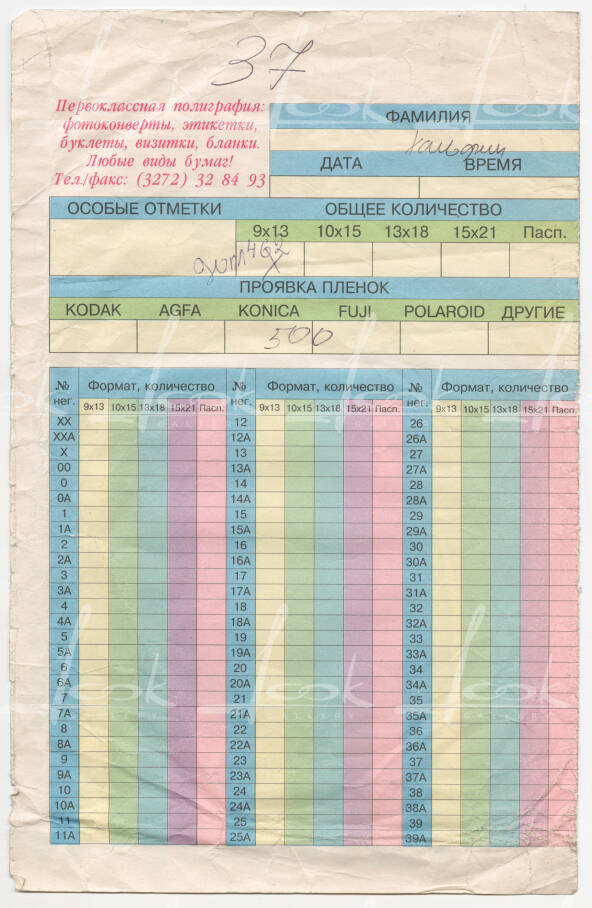 37
Первоклассная полиграфия:
фотоконверты, этикетки,
буклеты, визитки, бланки.
Любые виды бумаг!
Тел./факс: (3272) 32 84 93
ФАМИЛИЯ
ДАТА ВРЕМЯ
ОСОБЫЕ ОТМЕТКИ ОБЩЕЕ КОЛИЧЕСТВО
9x13 10x15 13x18 15x21 Пасп.
ПРОЯВКА ПЛЕНОК
KODAK AGFA KONICA FUJI POLAROID ДРУГИЕ
500
№ нег. Формат, количество № нег. Формат, количество № нег. Формат, количество
9x13 10x15 13x18 15x21 Пасп. 9x13 10x15 13x18 15x21 Пасп. 9x13 10x15 13x18 15x21 Пасп.
XX 12 26
XXA 12A 26A
X 13 27
00 13A 27A
0 14 28
0A 14A 28A
1 15 29
1A 15A 29A
2 16 30
2A 16A 30A
3 17 31
3A 17A 31A
4 18 32
4A 18A 32A
5 19 33
5A 19A 33A
6 20 34
6A 20A 34A
7 21 35
7A 21A 35A
8 22 36
8A 22A 36A
9 23 37
9A 23A 37A
10 24 38
10A 24A 38A
11 25 39
11A 25A 39A